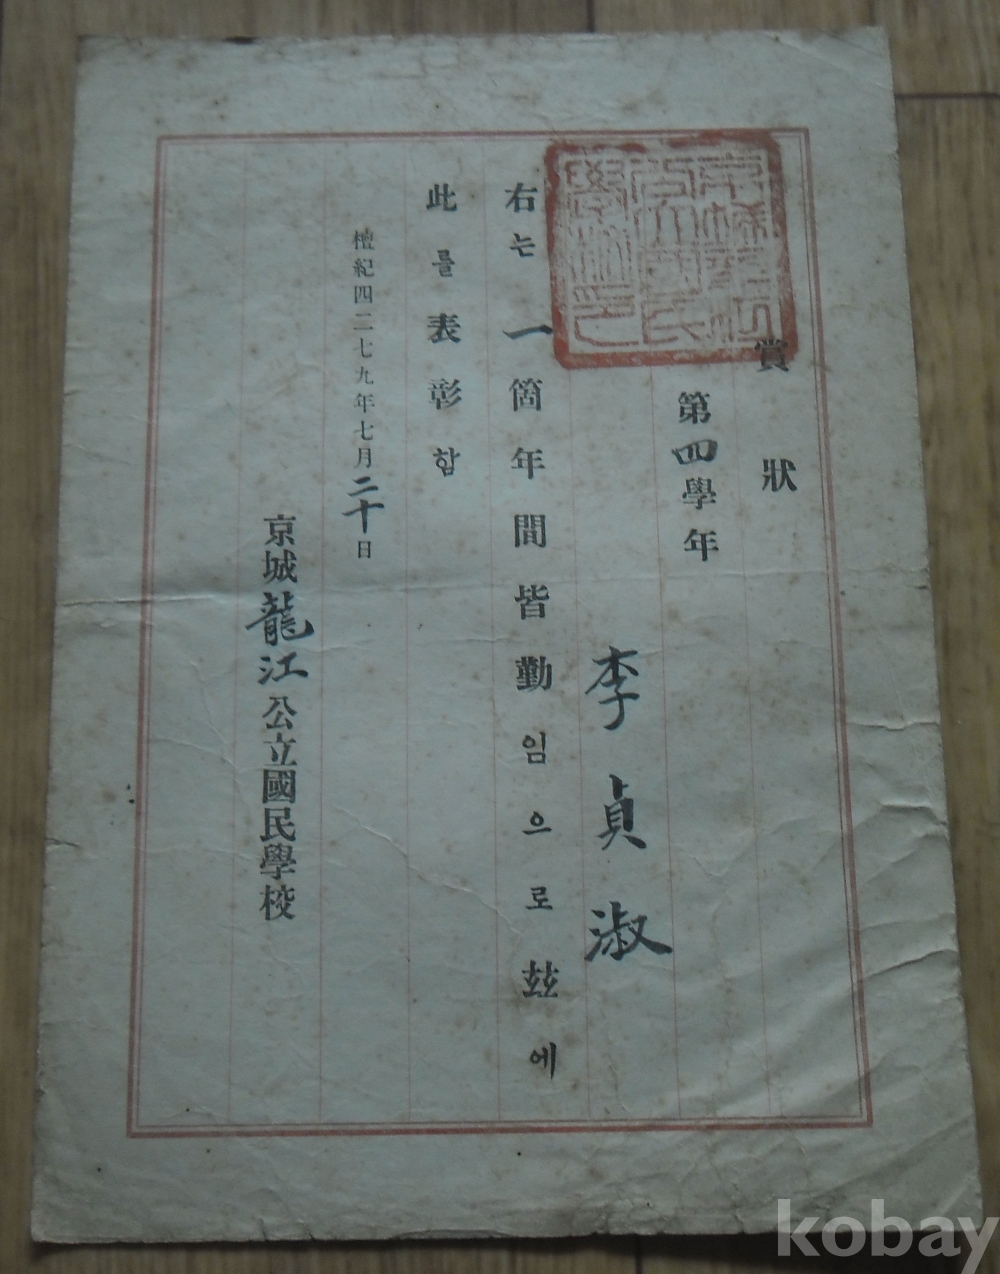 賞狀
第四學年
李貞淑
右는一箇年間皆勤임으로玆에
此를表彰함
檀紀四二七九年七月二十日
京城龍江公立國民學校
kobay